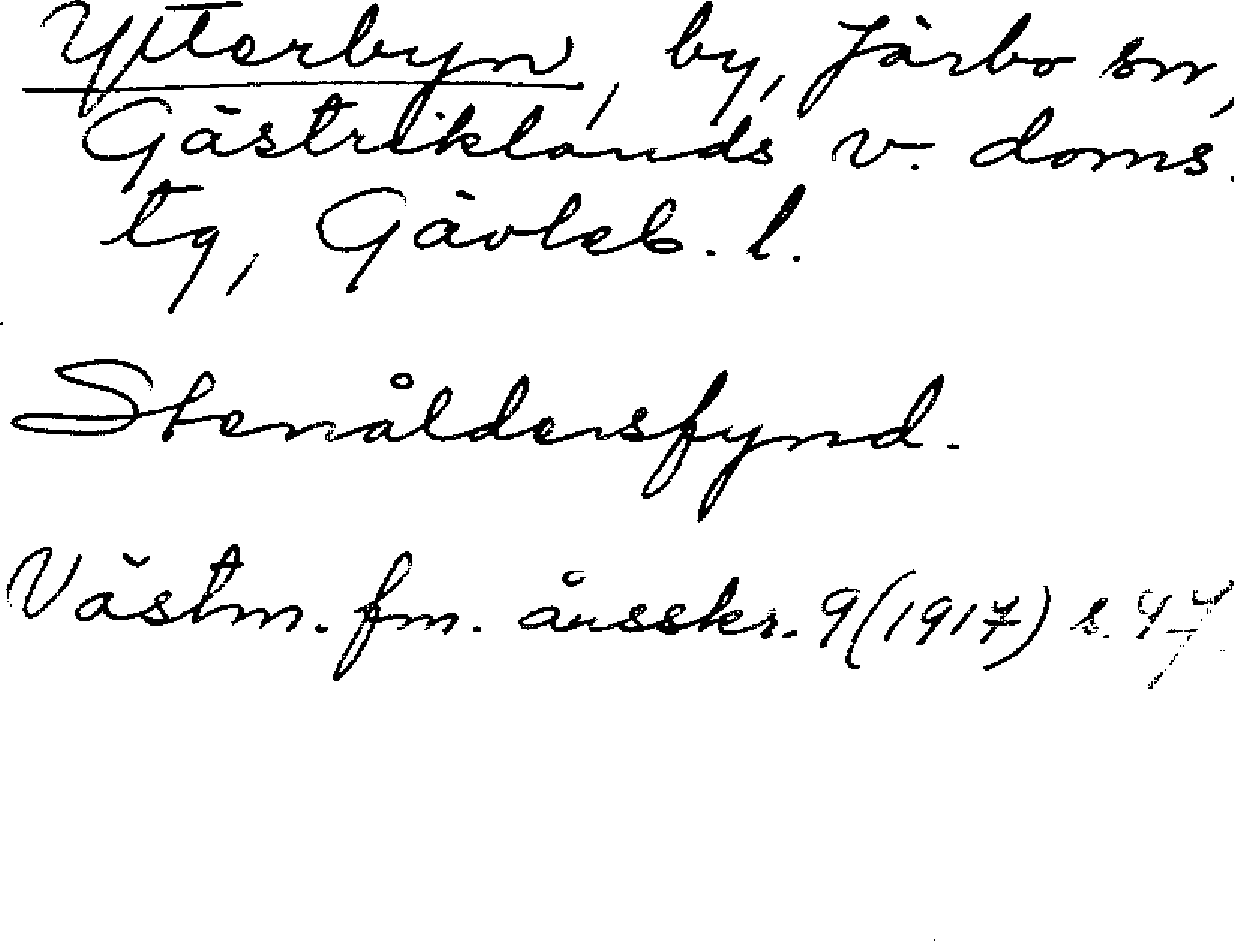 Ytterbyn, by, Järbo sn,
Gästriklands v. doms.
tg, Gävleb. l.
Stenåldersfynd.
Västm. fm. årsskr. 9 (1917) s. 47.